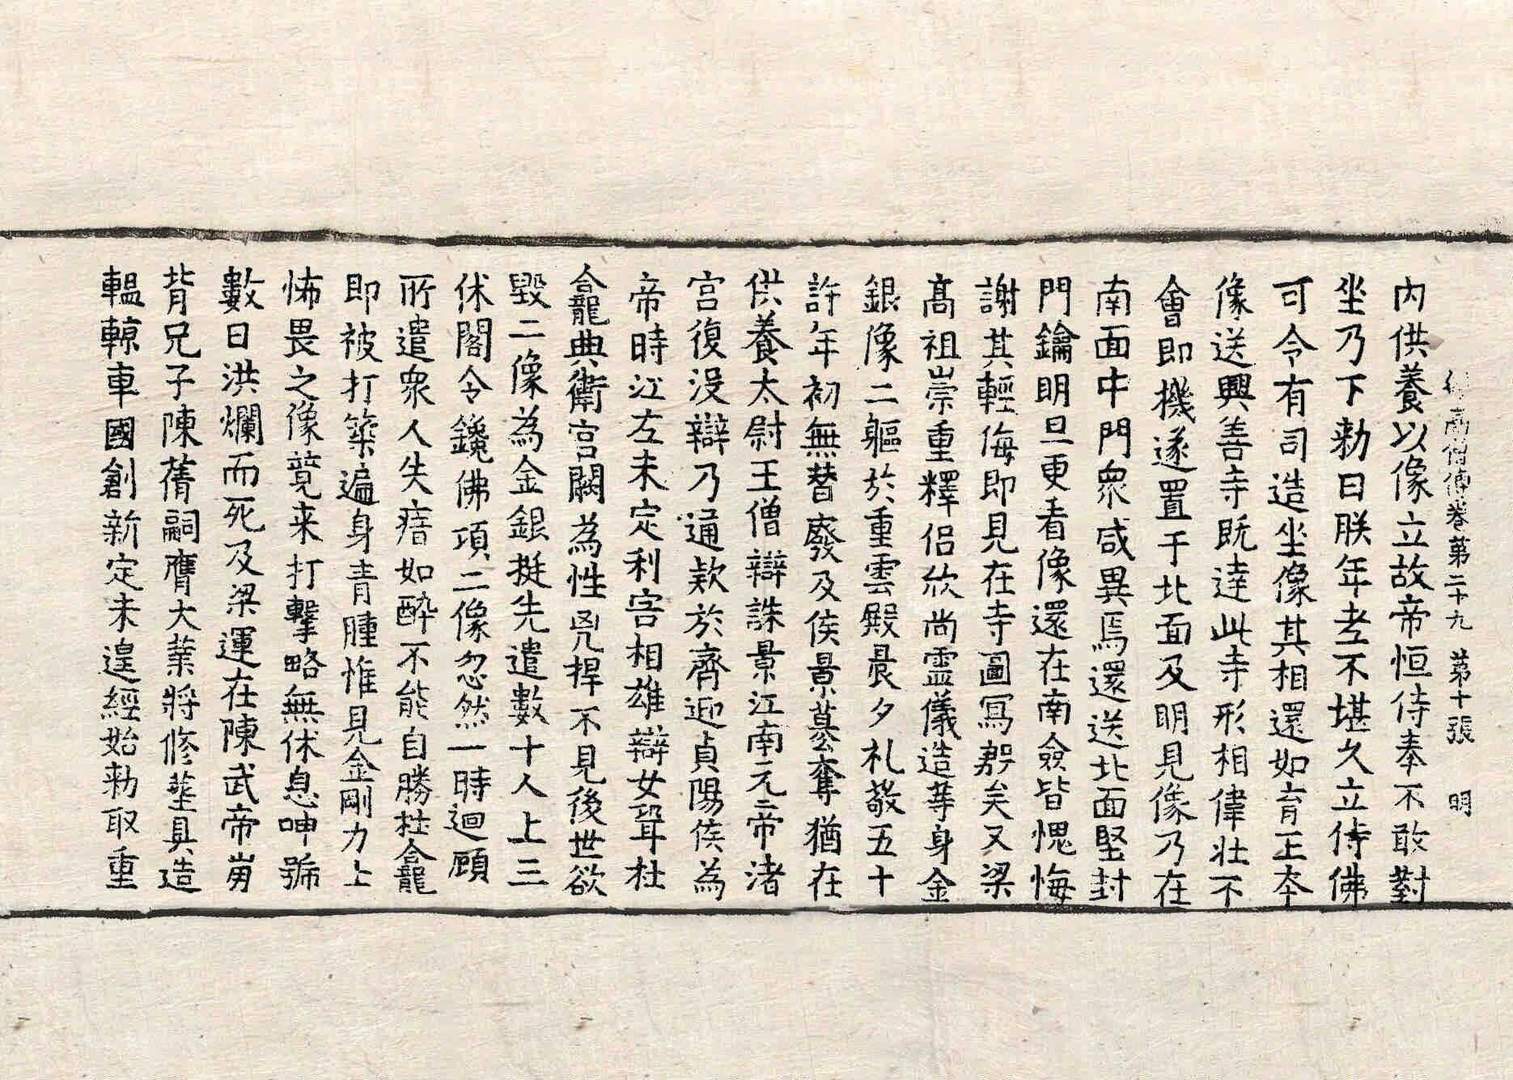 續高僧傳卷第二十九　第十張　明
內供養以像立故帝恒侍奉不敢對
坐乃下勑曰朕年老不堪久立侍佛
可令有司造坐像其相還如育王本
像送興善寺既達此寺形相偉壯不
會即機遂置于北面及明見像乃在
南面中門衆咸異焉還送北面堅封
門鑰明旦更看像還在南僉皆愧悔
謝其輕侮即見在寺圖寫殷矣又梁
髙祖崇重釋侶欣尚靈儀造等身金
銀像二軀於重雲殿晨夕礼敬五十
許年初無替廢及侯景簒奪猶在
供養太尉王僧辯誅景江南元帝渚
宮復没辯乃通欵於齊迎貞陽侯為
帝時江左未定利害相雄辯女聓杜
龕典衛宮闕為性兇捍不見後世欲
毀二像為金銀挺先遣數十人上三
休閣令鑱佛項二像忽然一時迴顧
所遣衆人失瘖如醉不能自勝杜龕
即被打築遍身青腫惟見金剛力士
怖畏之像競来打擊略無休息呻號
數日洪爛而死及梁運在陳武帝崩
背兄子陳蒨嗣膺大業將修葬具造
轀輬車國創新定未遑經始勑取重